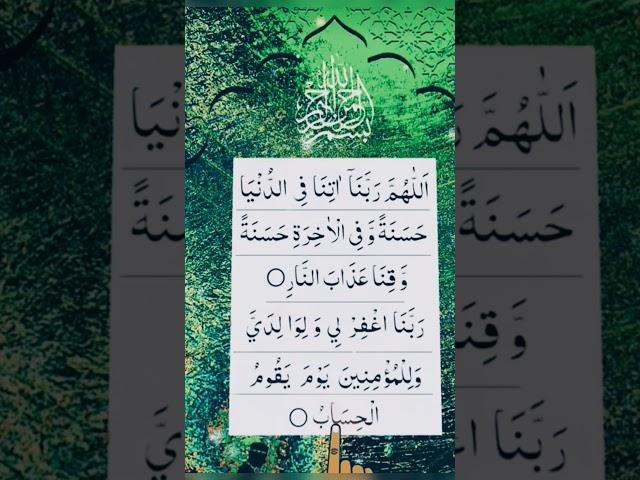 بسم الله الرحمن الرحيم
اَللّٰهُمَّ رَبَّنَآ اٰتِنَا فِي الدُّنْيَا
حَسَنَةً وَّ فِي الْاٰخِرَةِ حَسَنَةً
وَّ قِنَا عَذَابَ النَّارِ ○
رَبَّنَا اغْفِرْ لِي وَ لِوَا لِدَيَّ
وَلِلْمُؤْمِنِينَ يَوْمَ يَقُومُ
الْحِسَابُ ○